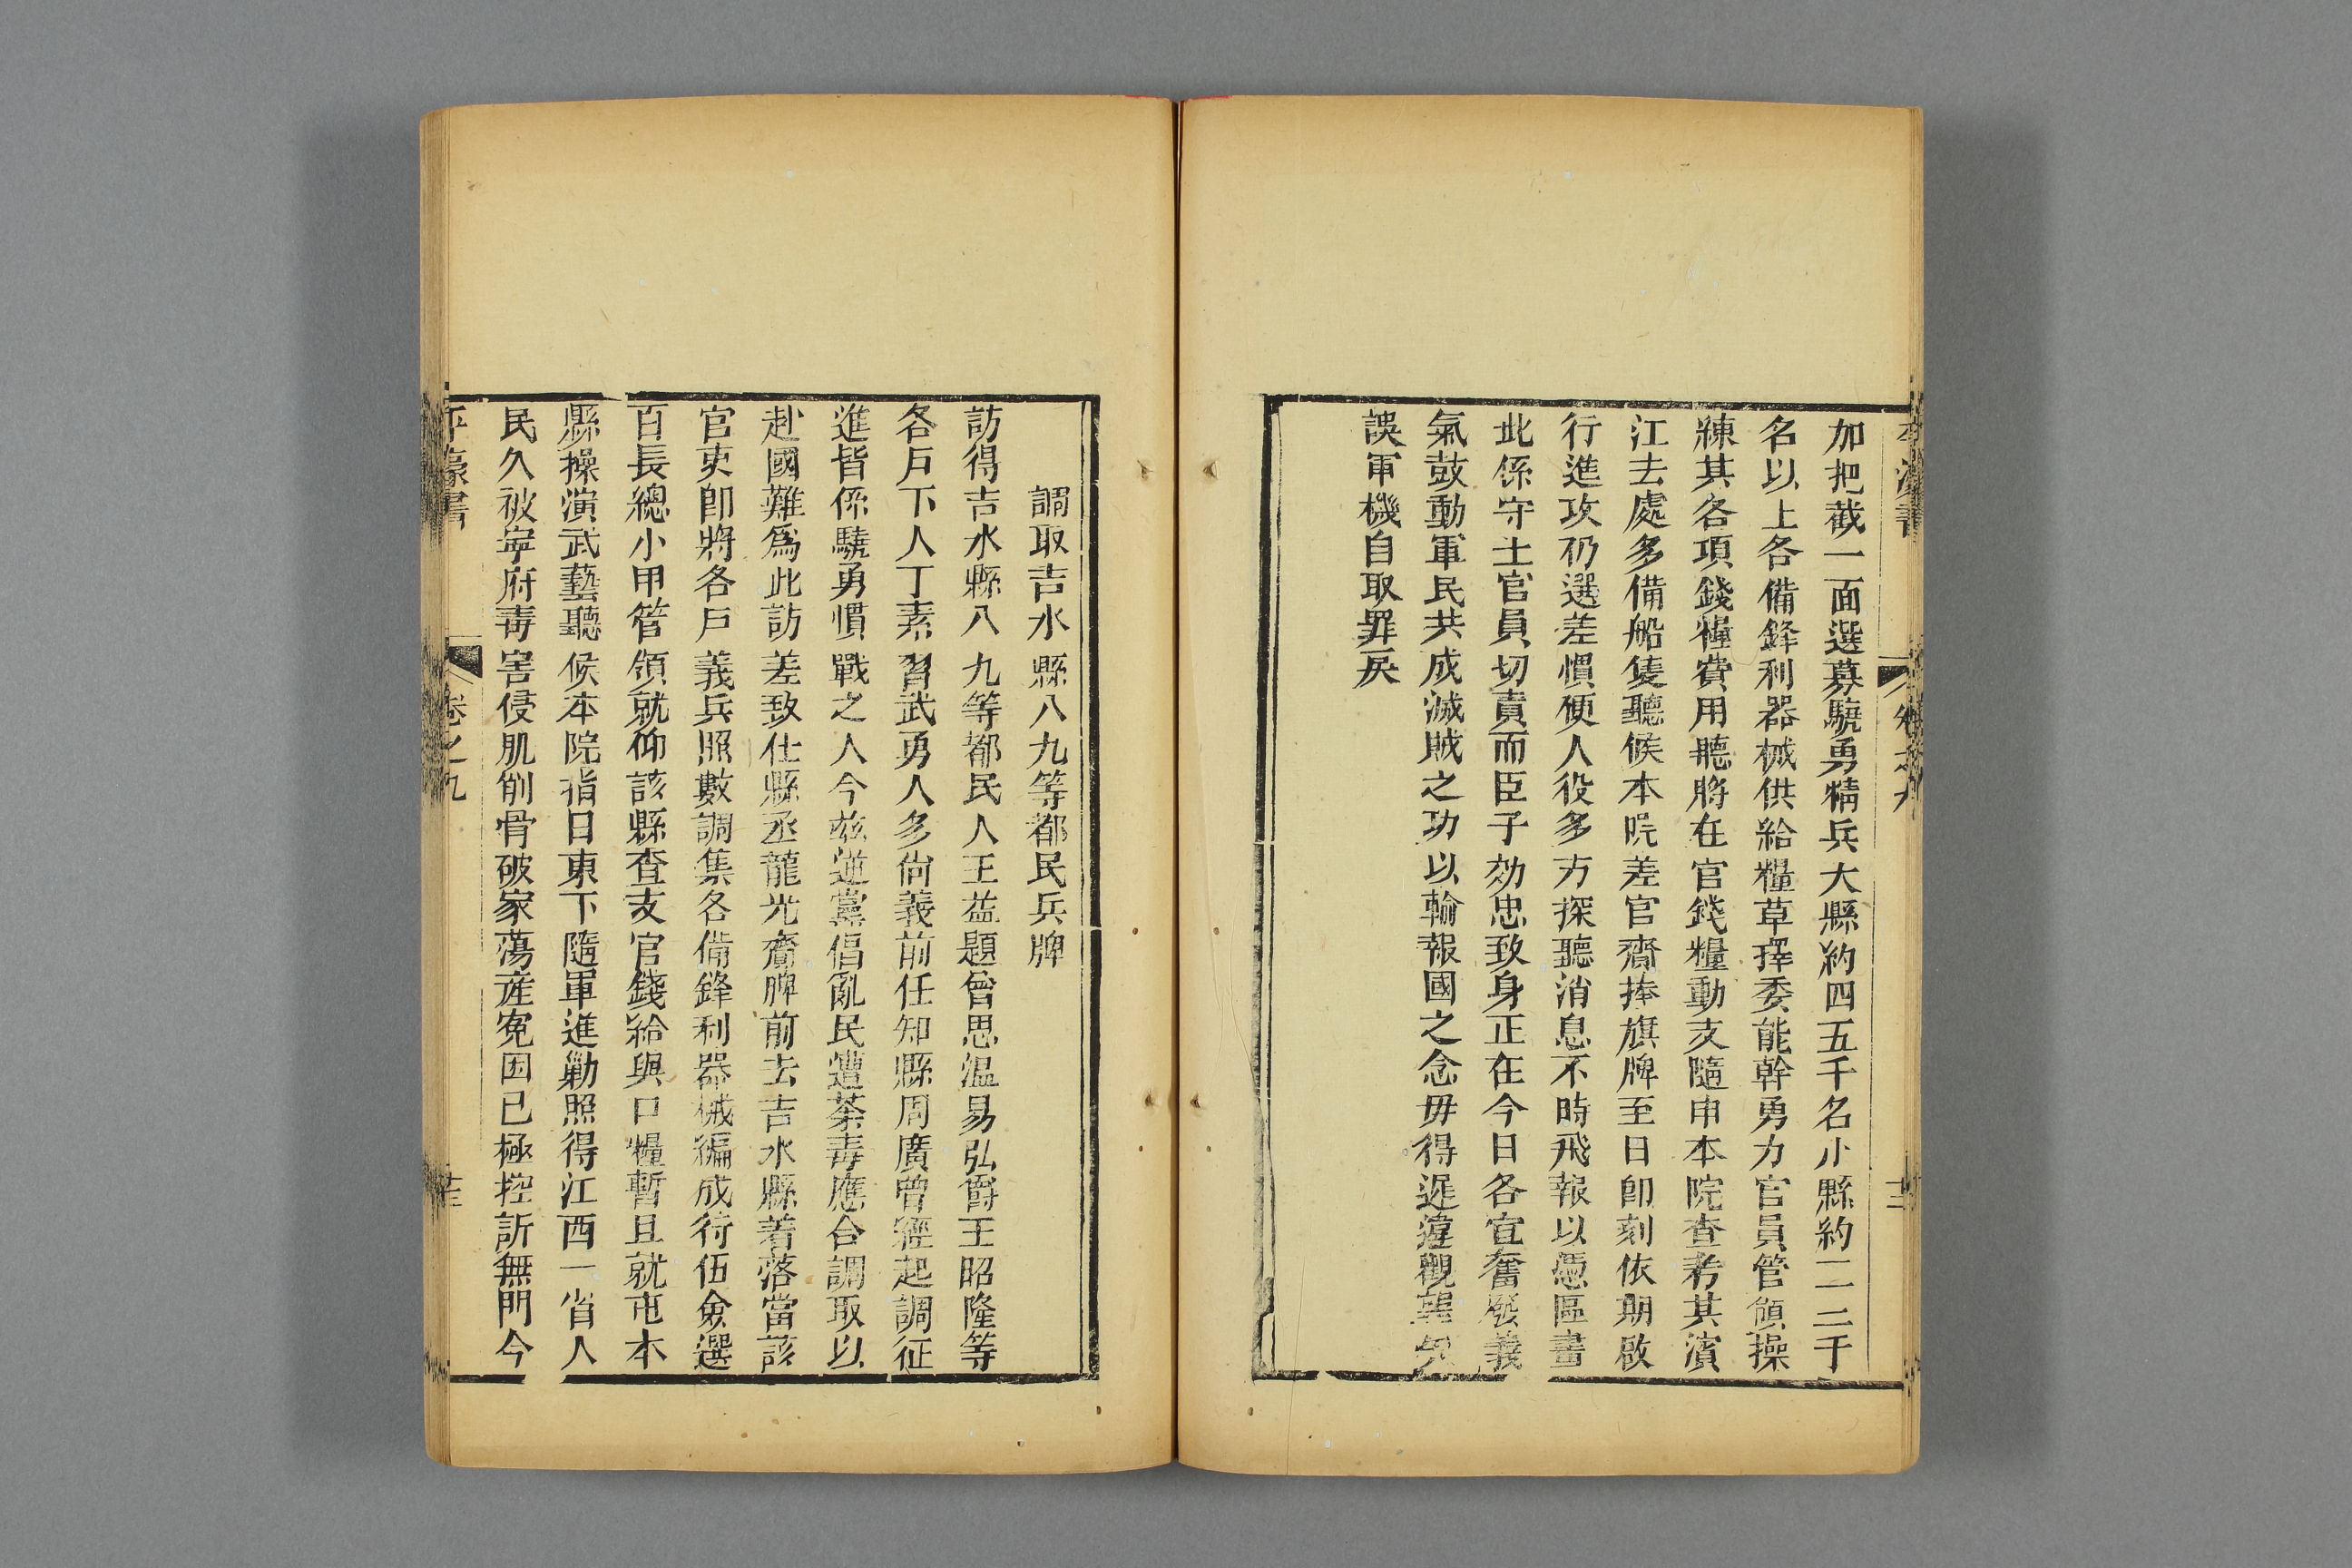 加把截一面選募驍勇精兵大縣約四五千名小縣約一二千
名以上各備鋒利器械供給糧草擇委能幹勇力官員管領操
練其各項錢糧費用聽將在官錢糧動支隨申本院查考其濱
江去處多備船隻聽候本院差官齎捧旗牌至日卽刻依期啟
行進攻仍選差慣便人役多方探聽消息不時飛報以憑區畫
此係守土官員切責而臣子効忠致身正在今日各宜奮發義
氣鼓動軍民共成滅賊之功以輸報國之念毋得遲違觀望失
誤軍機自取罪戾
調取吉水縣八九等都民兵牌
訪得吉水縣八九等都民人王益題曾思溫易弘爵王昭隆等
各戶下人丁素習武勇人多尙義前任知縣周廣曾經起調征
進皆係驍勇慣戰之人今兹逆黨倡亂民遭荼毒應合調取以
赴國難爲此訪差致仕縣丞龍光齎牌前去吉水縣着落當該
官吏卽將各戶義兵照數調集各備鋒利器械編成行伍僉選
百長總小甲管領就仰該縣查支官錢給與口糧暫且就屯本
縣操演武藝聽候本院指日東下隨軍進勦照得江西一省人
民久被寧府毒害侵肌削骨破家蕩產寃困已極控訴無門今
平濠書 卷之九